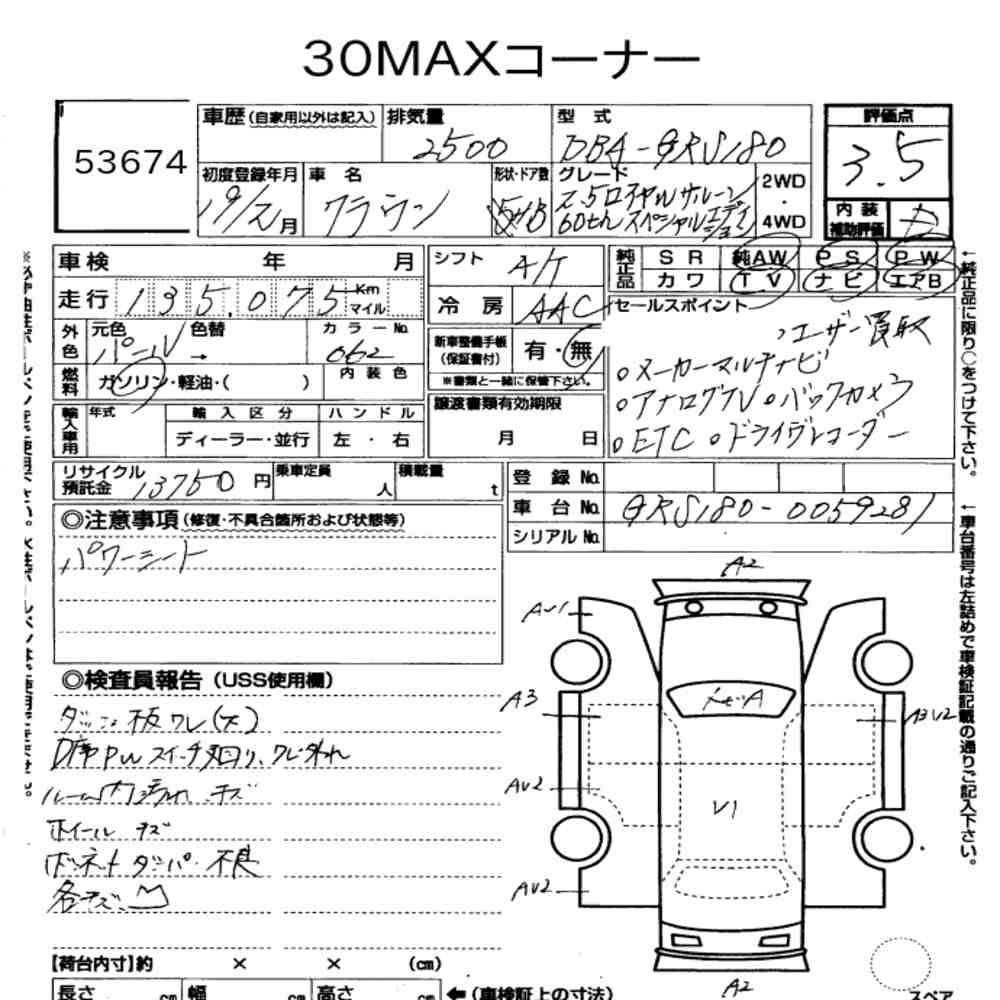 30MAXコーナー
53674
車歴(自家用以外は記入)
排気量
2500
型式
DBA-GRS180
評価点
3.5
初度登録年月
19/2月
車名
クラウン
形状・ドア数
グレード
2.5ロイヤルサルーン
60thスペシャルエディション
2WD
・
4WD
内装
補助評価
D
車検 年 月
走行 135,075 Km マイル
シフト A/T
冷房 AAC
純正品 SR 純AW PS PW
カワ TV ナビ エアB
外色 元色 パール 色替 → カラーNo. 062
燃料 ガソリン・軽油・( ) 内装色
新車整備手帳(保証書付) 有・無
※書類と一緒に保管下さい。
セールスポイント
ユーザー買取
○メーカーマルチナビ
○アナログTV○バックカメラ
○ETC○ドライブレコーダー
輸入車用 年式 輸入区分 ハンドル
ディーラー・並行 左・右
譲渡書類有効期限
月 日
リサイクル預託金 13750円 乗車定員 人 積載量 t
登録No.
車台No. GRS180-0059281
シリアルNo.
◎注意事項(修復・不具合箇所および状態等)
パワーシート
◎検査員報告(USS使用欄)
ダッシュ板ワレ(大)
D席PWスイッチ廻り、ワレ・外れ
ルーム内汚れ キズ
ホイール キズ
ボンネットダンパー不良
各キズ、凹
A2
AV1
A3
AV2
AV2
A3 V2
V1
A2
【荷台内寸】約 × × (cm)
長さ cm 幅 cm 高さ cm ←(車検証上の寸法)
スペア
←純正品に限り○をつけて下さい。
←車台番号は左詰めで車検証記載の通りご記入下さい。